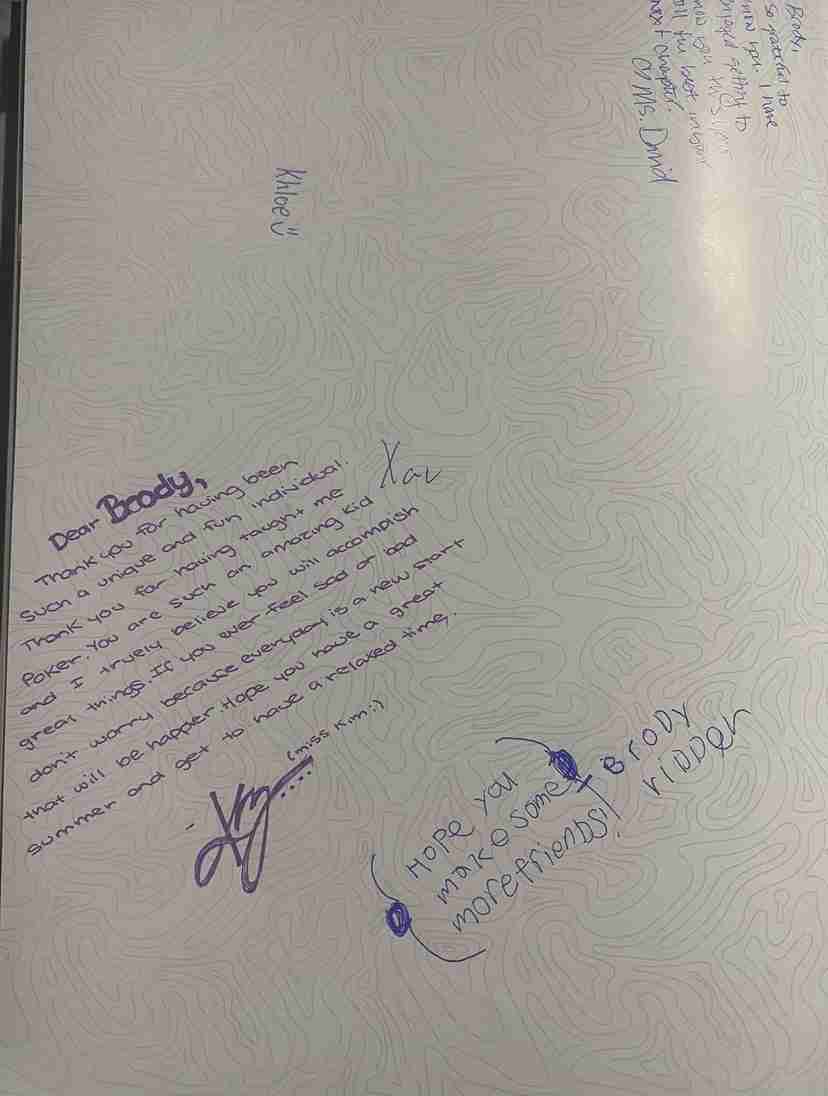 Brody,
so grateful to
know you. I have
enjoyed getting to
know you this year
all the best in your
next chapter.
Ms. David
Khloe
Xav
Dear Brody,
Thank you for having been
such a unique and fun individual.
Thank you for having taught me
Poker. You are such an amazing kid
and I truely believe you will accomplish
great things. If you ever feel sad or bad
don't worry because everyday is a new start
that will be happer. Hope you have a great
summer and get to have a relaxed time.
(miss Kim :)
Hope you
make some
more friends!
- Brody
ridder